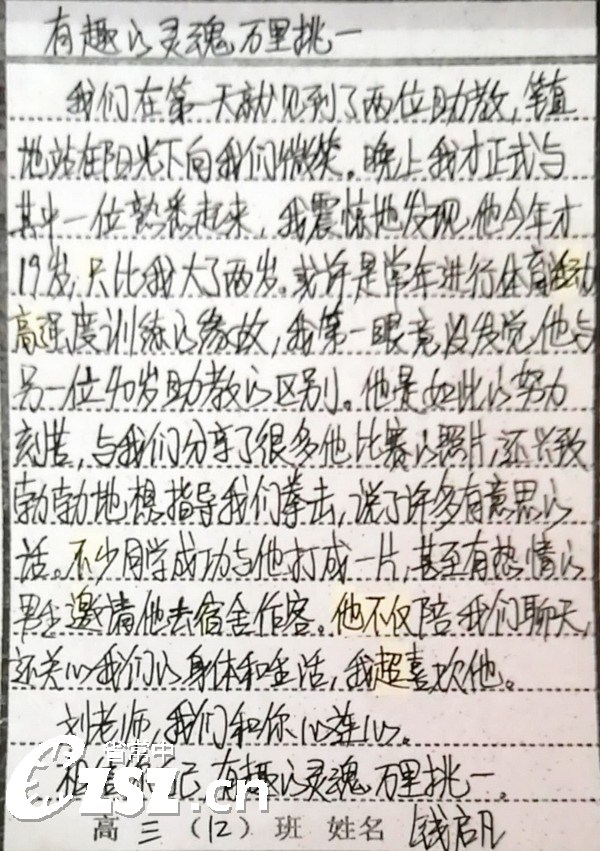 有趣的灵魂万里挑一
我们在第一天就见到了两位助教，笔直
地站在阳光下向我们微笑。晚上我才正式与
其中一位熟悉起来，我震惊地发现他今年才
19岁，只比我大了两岁。或许是常年进行体育运动
高强度训练的缘故，我第一眼竟没发觉他与
另一位40岁助教的区别。他是如此的努力
刻苦，与我们分享了很多他比赛的照片，还兴致
勃勃地想指导我们拳击，说了许多有意思的
话。不少同学成功与他打成一片，甚至有热情的
男生邀请他去宿舍作客。他不仅陪我们聊天，
还关心我们的身体和生活，我超喜欢他。
刘老师，我们和你心连心。
相信你自己，有趣的灵魂万里挑一。
高三（12）班 姓名 钱启凡
省常中
czsz.cn